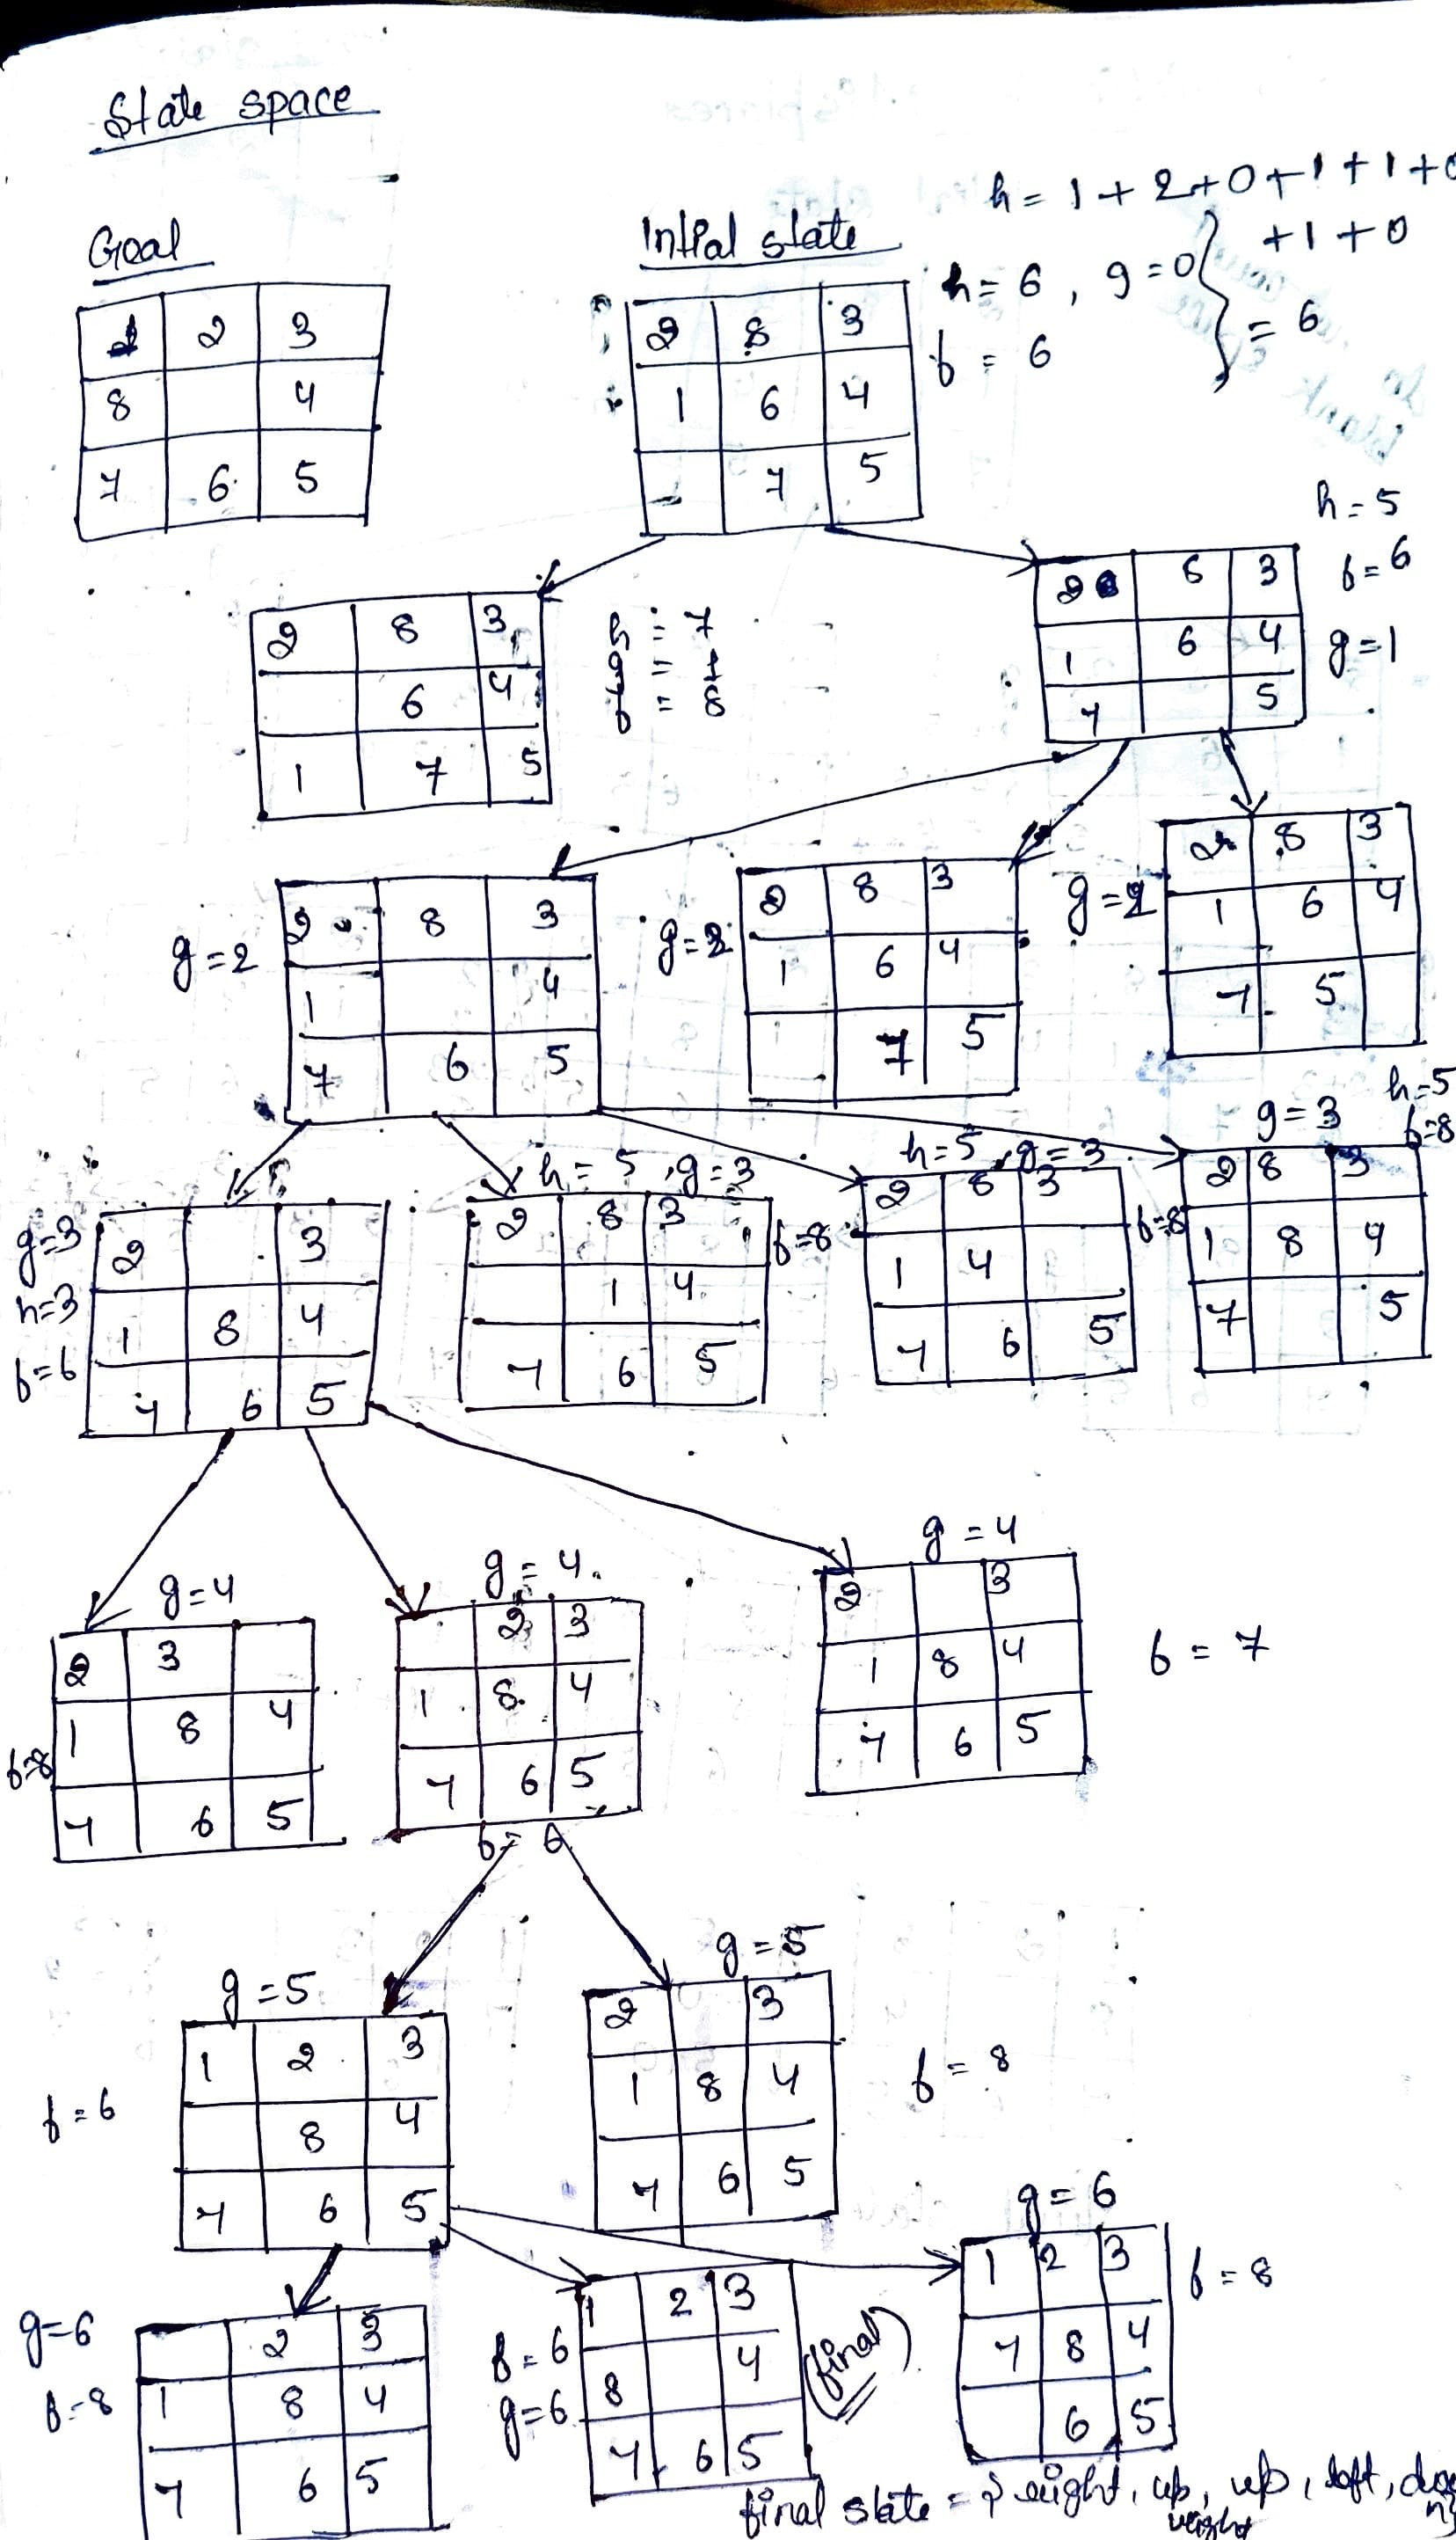 State space
h = 1 + 2 + 0 + 1 + 1 + 0
+ 1 + 0
= 6
Goal
Intial state
h = 6 , g = 0
f = 6
1 2 3
8 4
7 6 5
2 8 3
1 6 4
7 5
h = 5
f = 6
g = 1
2 8 3
6 4
1 7 5
h = 7
g = 1
f = 8
2 8 3
1 6 4
7 5
g = 2
2 8 3
1 4
7 6 5
g = 2
2 8 3
1 6 4
7 5
g = 2
2 8 3
1 6 4
7 5
g = 3
h = 3
f = 6
2 3
1 8 4
7 6 5
h = 5 , g = 3
f = 8
2 8 3
1 4
7 6 5
h = 5 , g = 3
f = 8
2 8 3
1 4
7 6 5
g = 3
h = 5
f = 8
2 8 3
1 8 4
7 5
g = 4
f = 8
2 3
1 8 4
7 6 5
g = 4
2 3
1 8 4
7 6 5
f = 6
g = 4
2 3
1 8 4
7 6 5
f = 7
g = 5
f = 6
1 2 3
8 4
7 6 5
g = 5
2 3
1 8 4
7 6 5
f = 8
g = 6
f = 8
2 3
1 8 4
7 6 5
f = 6
g = 6
1 2 3
8 4
7 6 5
(final)
g = 6
1 2 3
7 8 4
6 5
f = 8
final state = { right, up, up, left,
right